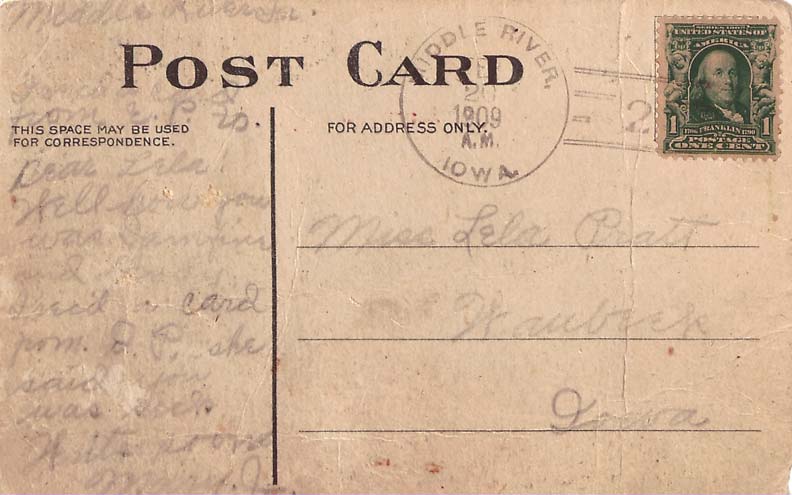 Middle River Ia.
POST CARD
THIS SPACE MAY BE USED
FOR CORRESPONDENCE.
FOR ADDRESS ONLY.
MIDDLE RIVER,
2
1909
A.M.
IOWA.
2
SERIES 1902
UNITED STATES OF
AMERICA
1 1706 FRANKLIN 1790 1
POSTAGE
ONE CENT
from E. P.
Dear Lela
Well how you
was
and
rec'd a card
from. E. P. she
said you
was sick
Write soon
Miss Lela Pratt
Waubeek
Iowa